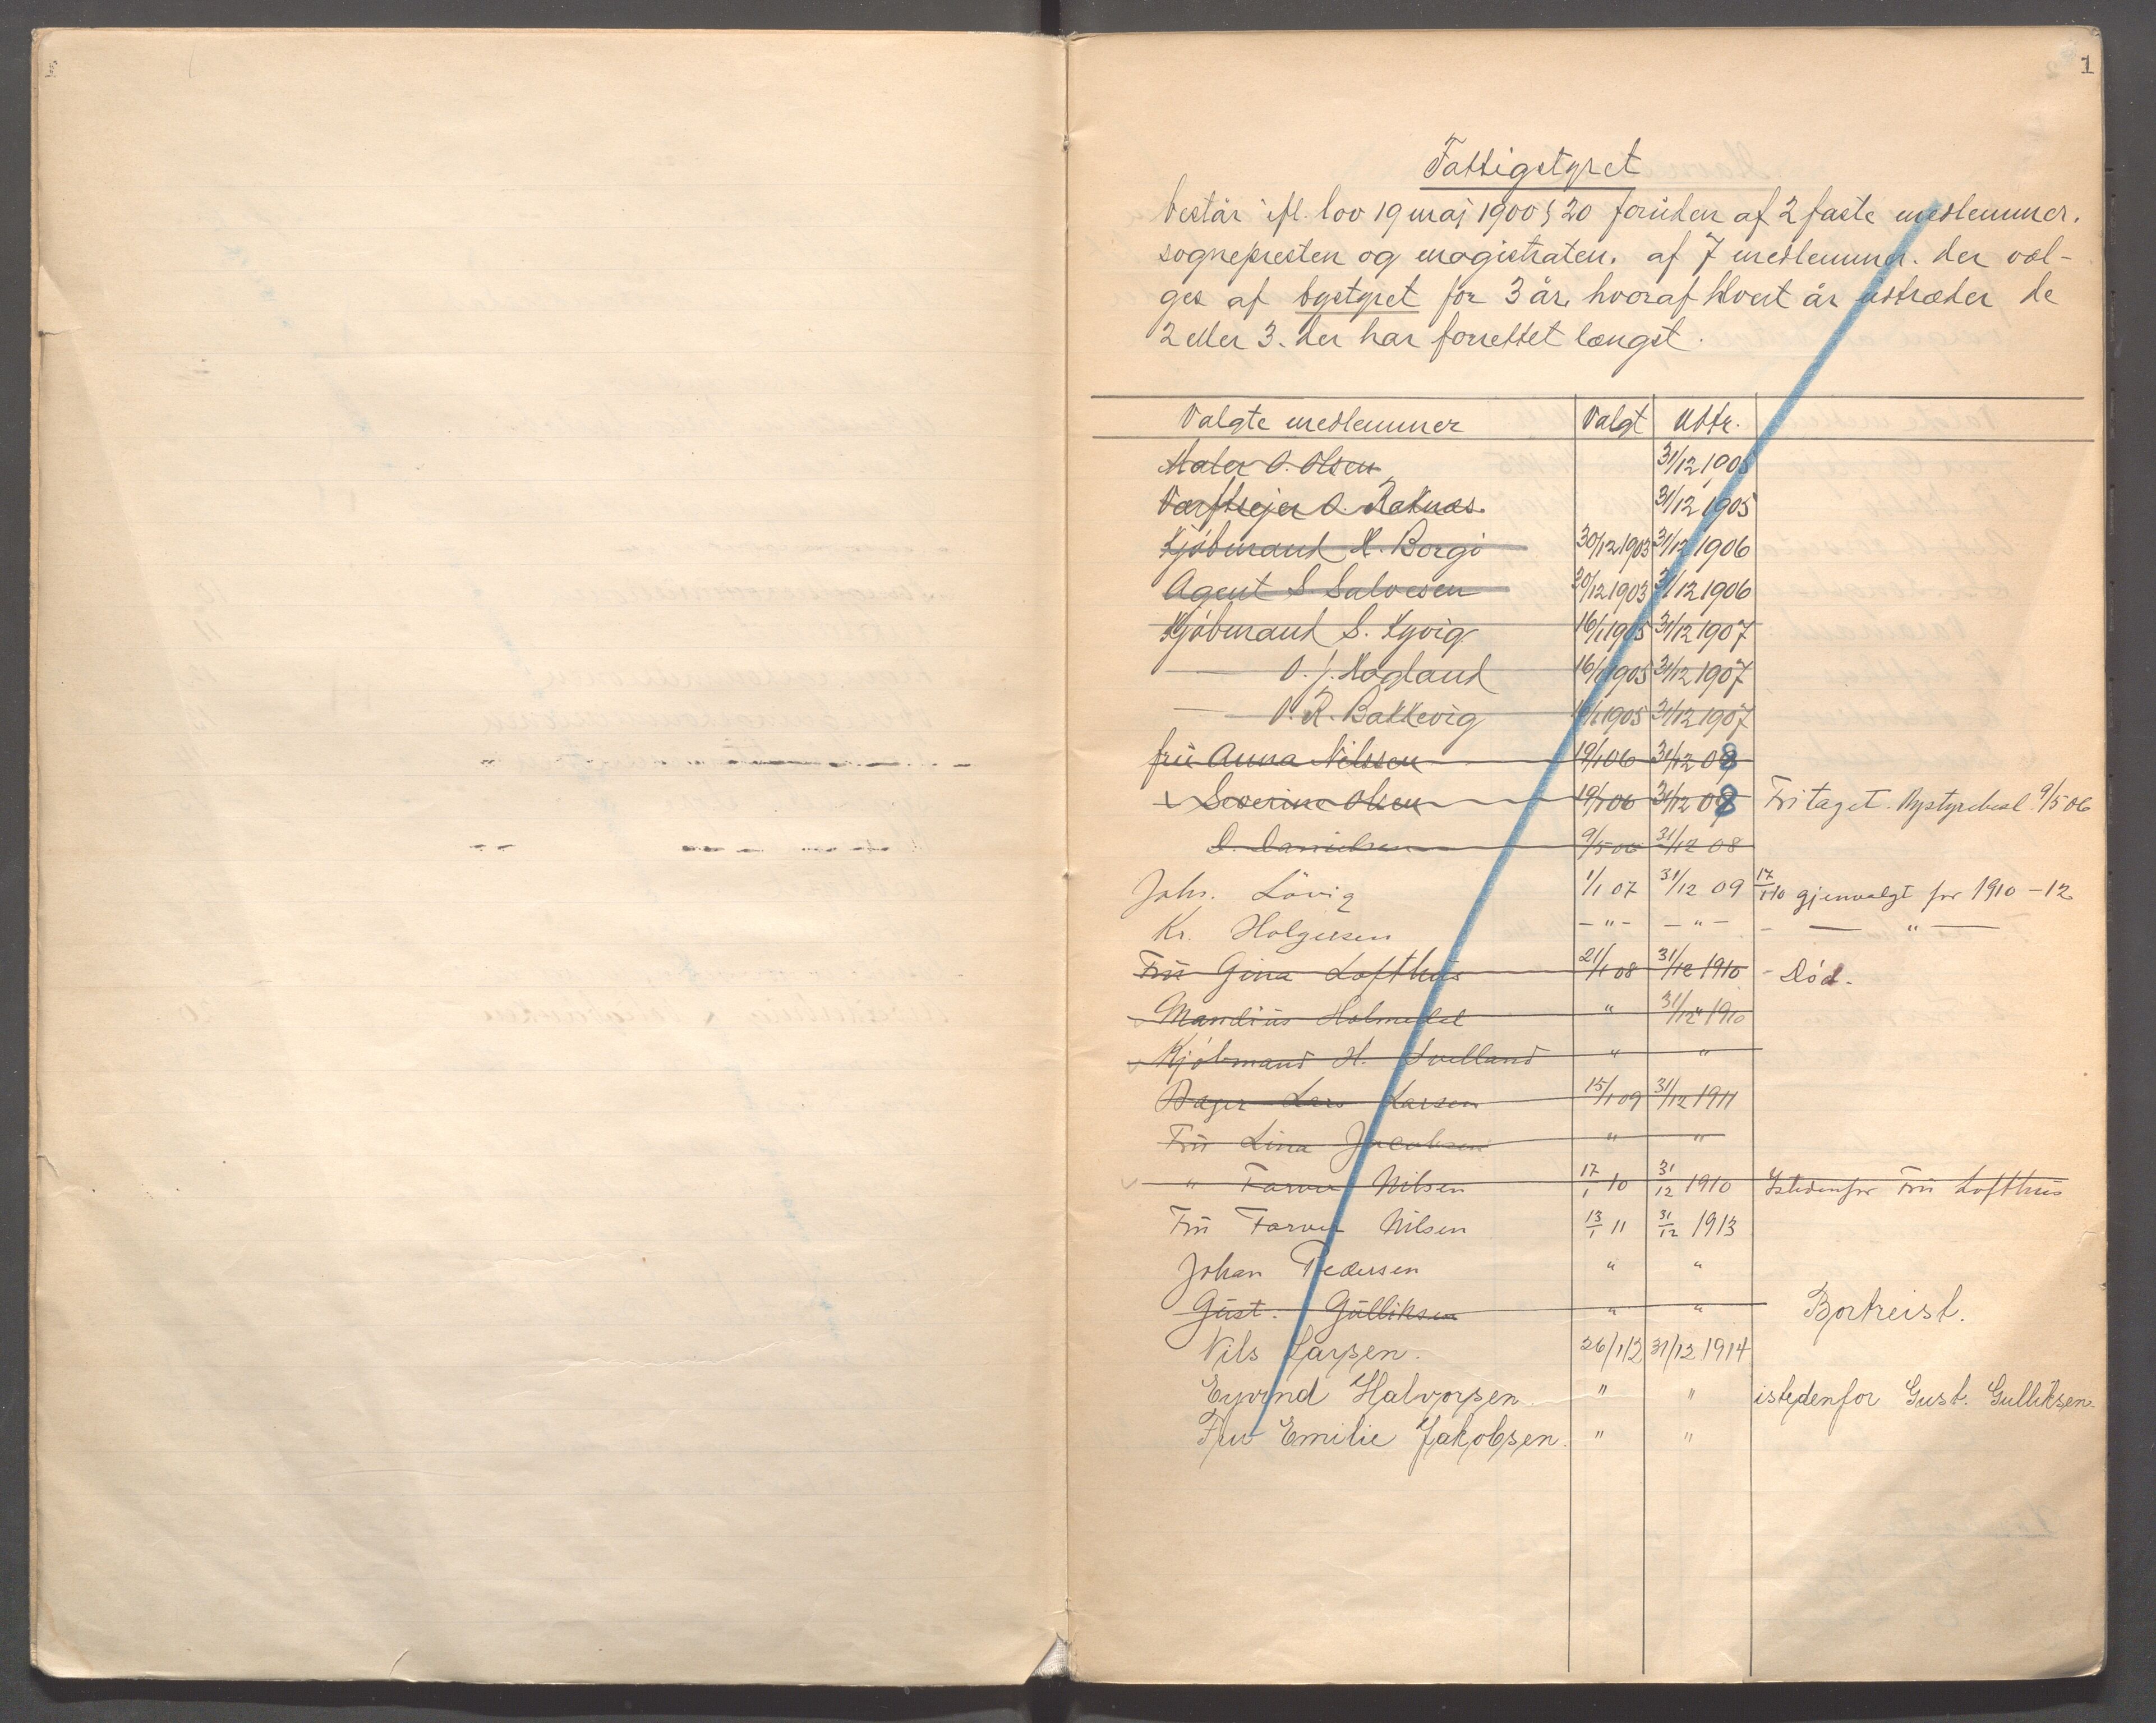 1
Fattigstyret
består ifl. lov 19 maj 1900 § 20 foruden af 2 faste medlemmer,
sognepresten og magistraten, af 7 medlemmer, der væl-
ges af bystyret for 3 år, hvoraf hvert år udtræder de
2 eller 3, der har forrettet længst.
Valgte medlemmer Valgt Udtr.
Maler O. Olsen 31/12 1905
Værftsejer O. Raknæs. 31/12 1905
Kjøbmand K. Borgø 30/12 1903 31/12 1906
Agent S. Salvesen 30/12 1903 31/12 1906
Kjøbmand S. Kyvig 16/1 1905 31/12 1907
— O. J. Hagland 16/1 1905 31/12 1907
— O. R. Bakkevig 16/1 1905 31/12 1907
frü Anna Nilssen 19/1 06 31/12 08
Severine Olsen 19/1 06 31/12 08 Fritaget. Bystyrebesl. 9/5 06
D. Danielsen 9/5 06 31/12 08
Johs. Lövig 1/1 07 31/12 09 17/1 10 gjenvalgt for 1910-12
Kr. Holgersen -"- -"- - — " —
Frü Gina Lofthüs 21/1 08 31/12 1910 - Död.
Mandius Holmedal " 31/12 1910
Kjöbmand H. Svelland " "
Bager Lars Larsen 15/1 09 31/12 1911
Frü Lina Jacobsen " "
" Farver Nilsen 17/1 10 31/12 1910 Istedenfor Frü Lofthüs
Frü Farver Nilsen 13/1 11 31/12 1913
Johan Pedersen " "
Güst. Gülliksen " " Bortreist.
Nils Larsen. 26/1 12 31/12 1914
Eyvind Halvorsen " " istedenfor Gust. Gulliksen.
Fru Emilie Jakobsen. " "